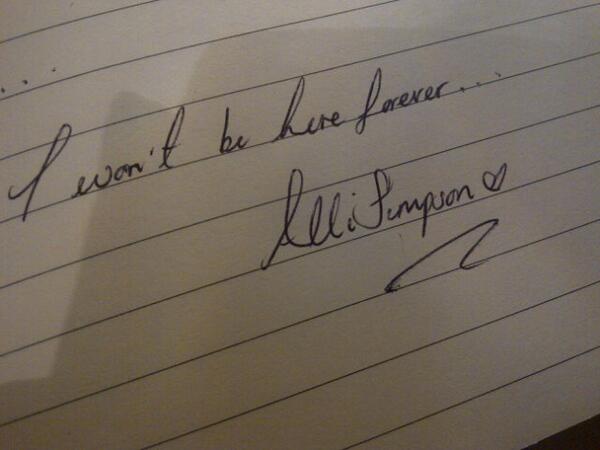 ...
I won't be here forever...
Alli Simpson ♡